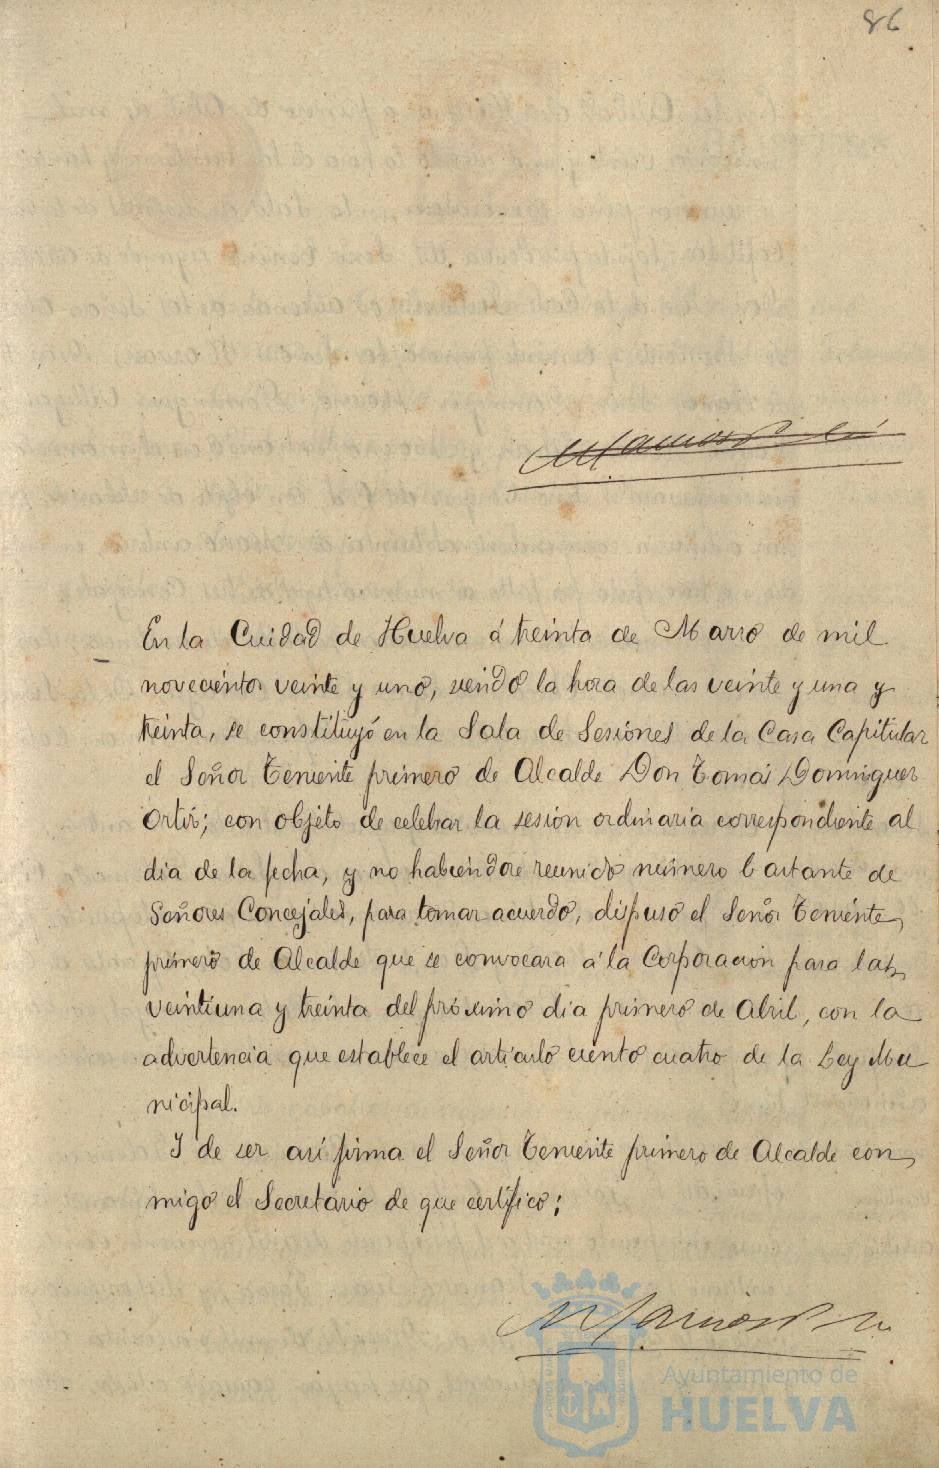 86
En la Cuidad de Huelva á treinta de Marso de mil
novecientos veinte y uno, siendo la hora de las veinte y una y
treinta, se constituyó en la Sala de Sesiones de la Casa Capitular
el Señor Teniente primero de Alcalde Don Tomás Domingues
Ortis; con objeto de celebrar la sesión ordinaria correspondiente al
dia de la fecha, y no habiendose reunido número bastante de
Señores Concejales, para tomar acuerdo, dispuso el Señor Teniente
primero de Alcalde que se convocara á la Corporación para las
veintiuna y treinta del próximo dia primero de Abril, con la
advertencia que establece el articulo ciento cuatro de la Ley Mu
nicipal.
Y de ser así firma el Señor Teniente primero de Alcalde con
migo el Secretario de que certifico;
Ayuntamiento de
HUELVA